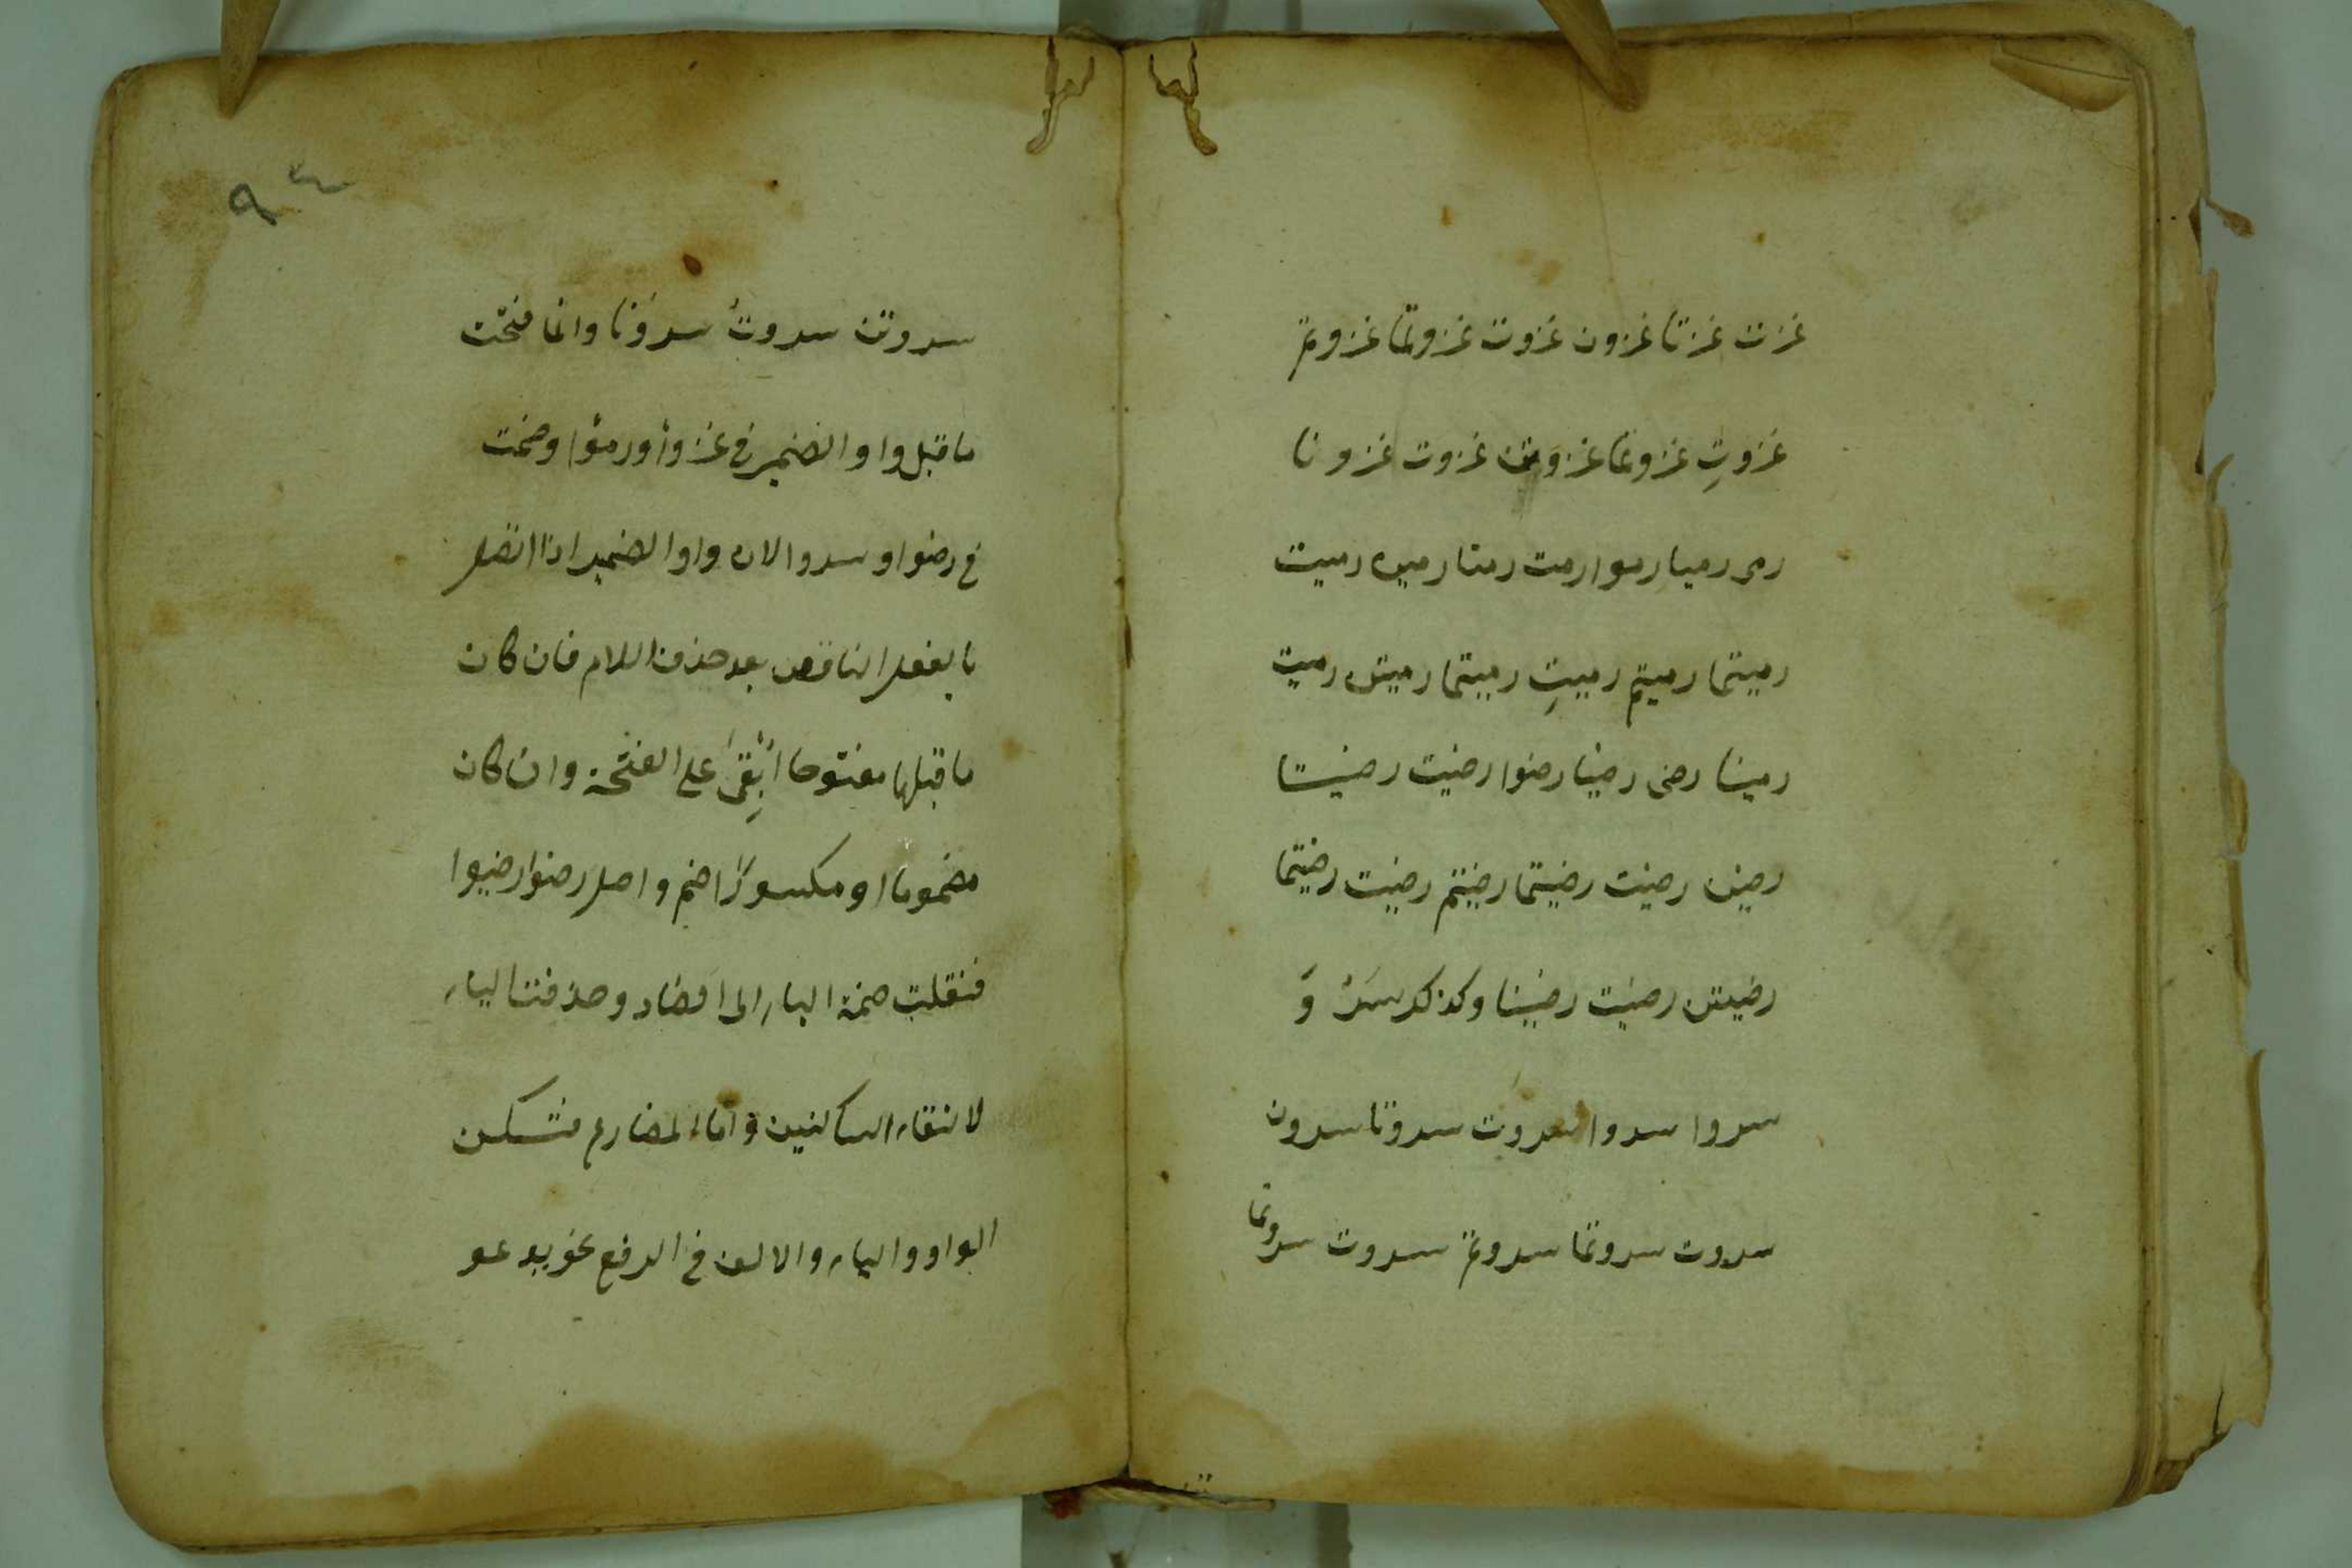 غزت غزتا غزون غزوت غزوتما غزوتم
غزوتِ غزوتما غزوتن غزوت غزونا
رمى رميا رموا رمت رمتا رمين رميت
رميتما رميتم رميتِ رميتما رميتن رميت
رمينا رضى رضيا رضوا رضيت رضيتا
رضين رضيت رضيتما رضيتم رضيت رضيتما
رضيتن رضيت رضينا وكذلك سَرُ وَ
سروا سروا سروَت سروتا سرون
سروت سروتما سروتم سروت سروتما
٩٤
سروتن سروتُ سروْنا وانما فتحت
ما قبل واو الضمير فى غزوْا ورموْا وضمت
فى رضوا وسروا لان واو الضمير اذا اتصل
بالفعل الناقص بعد حذف اللام فان كان
ما قبلها مفتوحا اُبْقِىَ على الفتحة وان كان
مضموما او مكسورًا ضم واصل رضوا رضيوا
فنقلت ضمة الياء الى الضاد وحذفت الياء
لالتقاء الساكنين واما المضارع فتسكن
الواو والياء والالف فى الرفع نحو يدعو